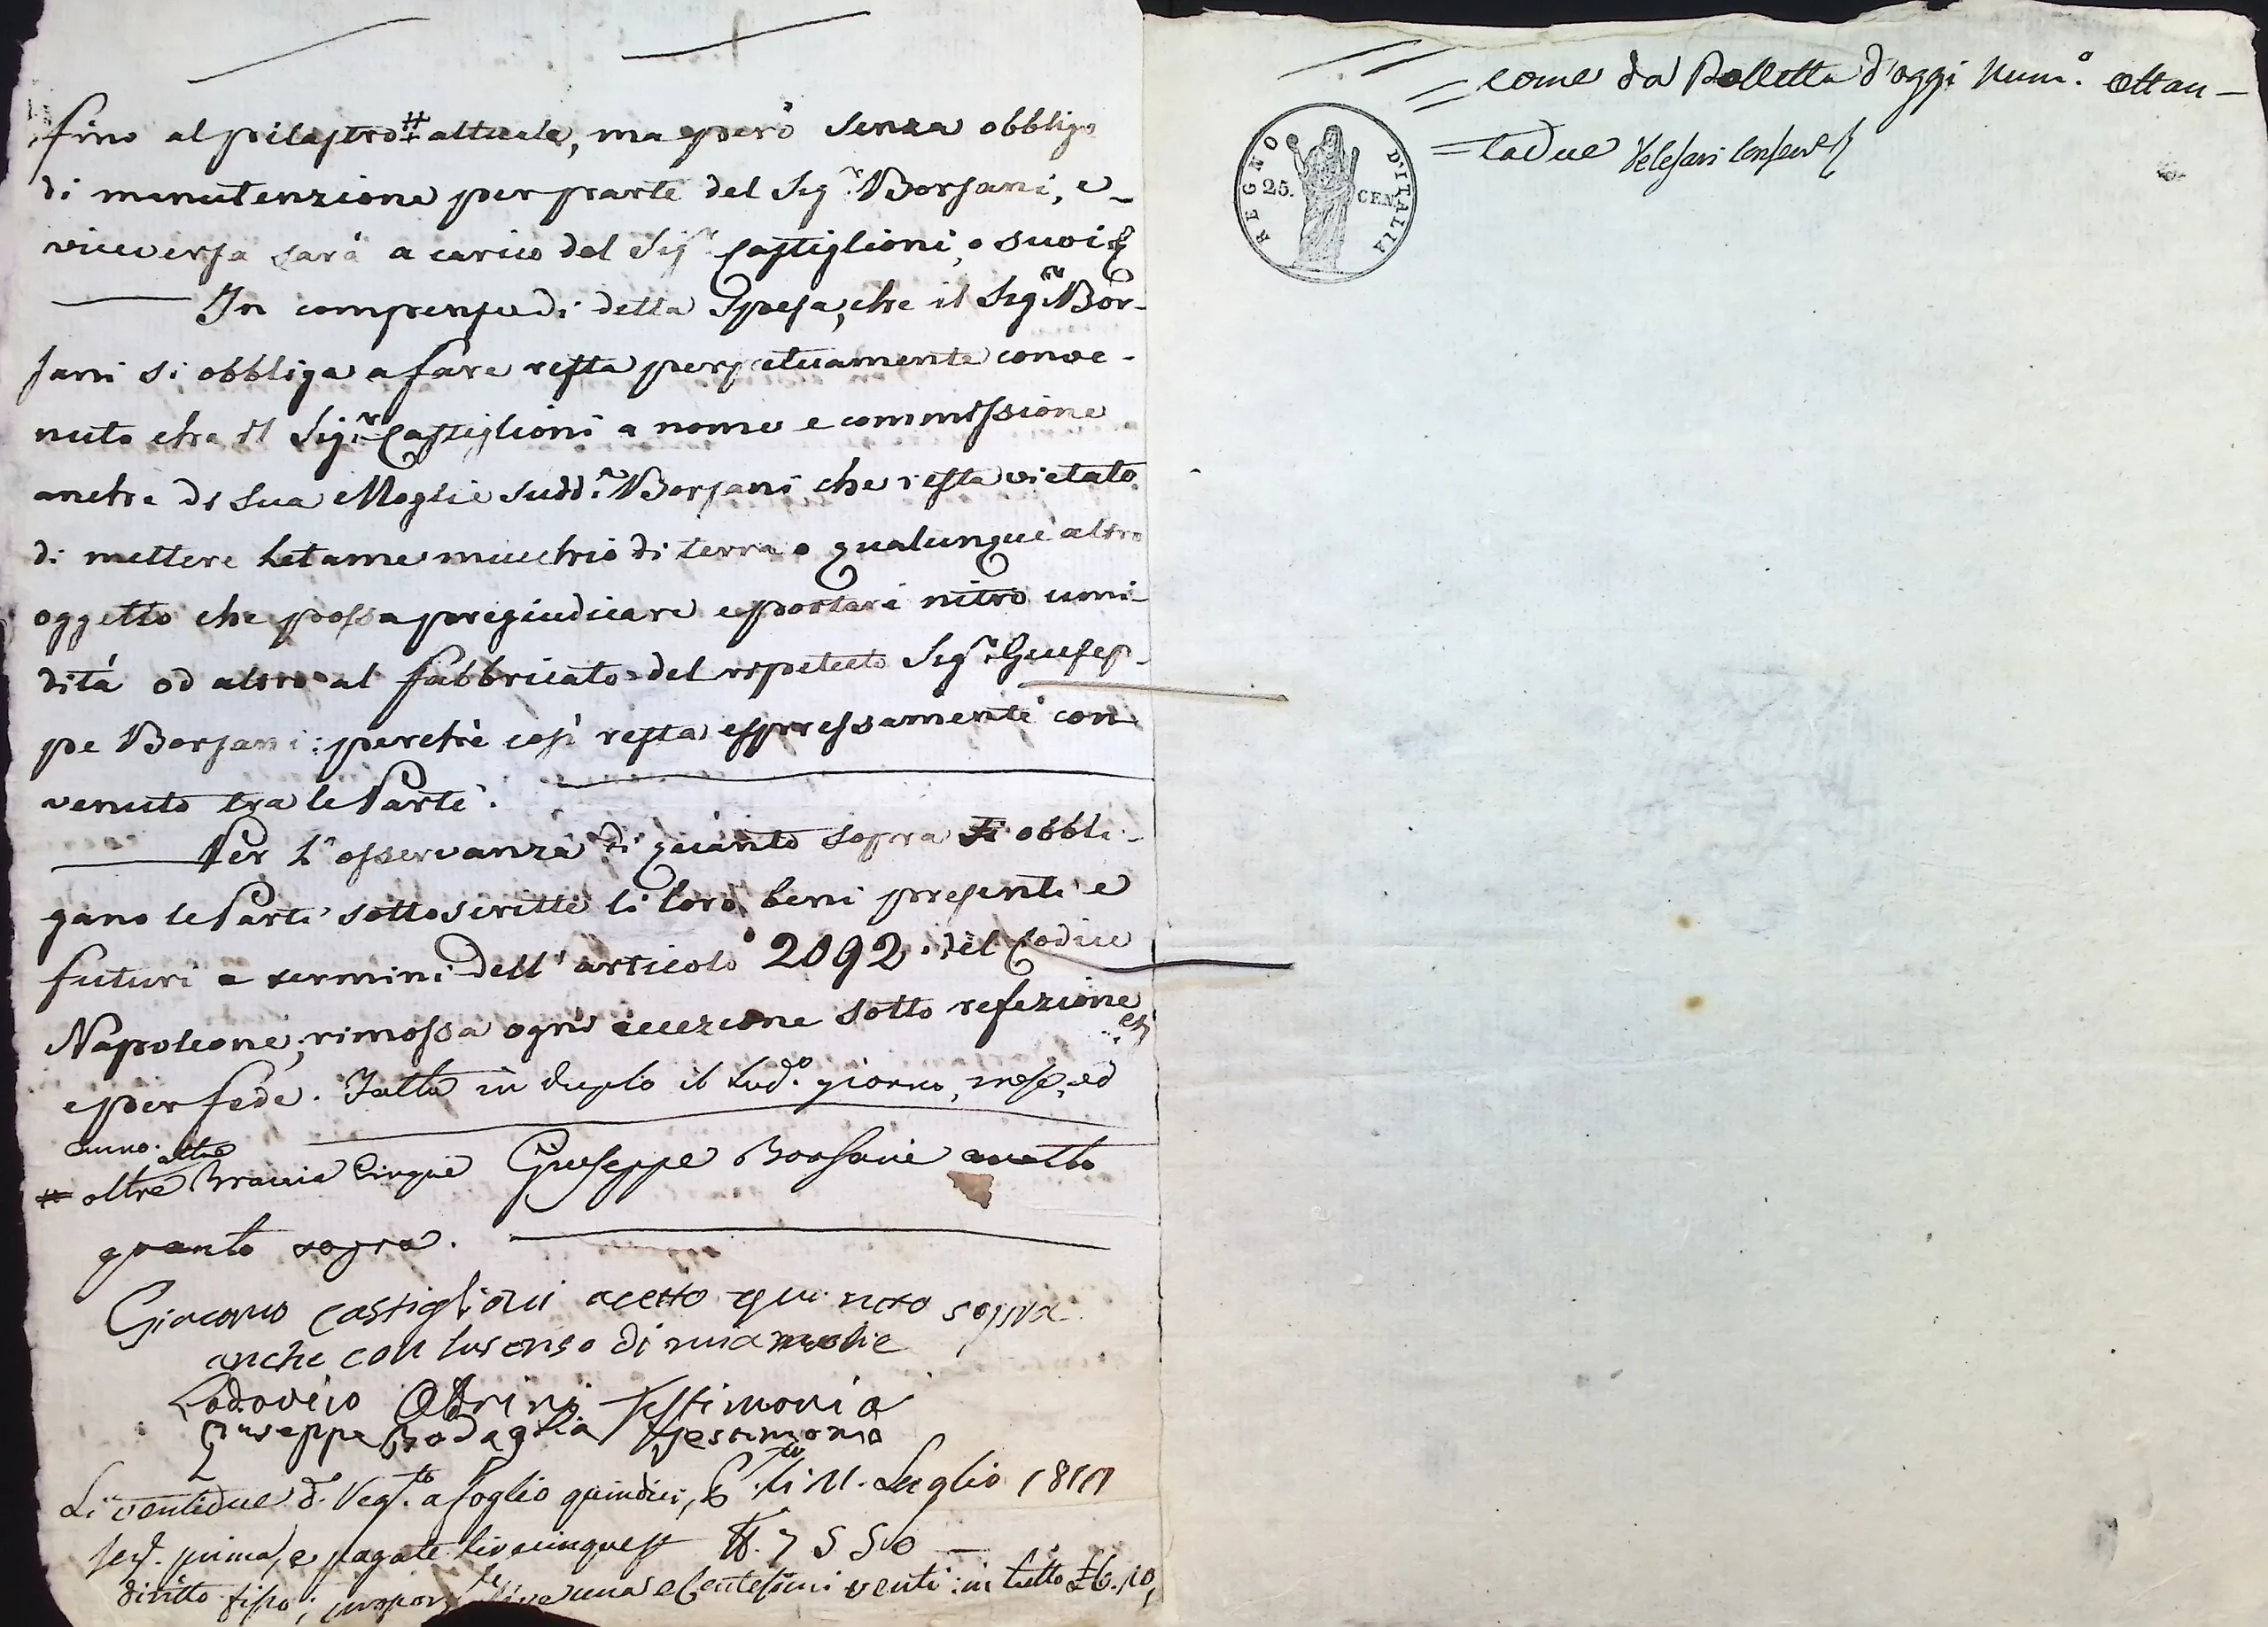 fino al pilastro # attuale, ma però senza obbligo
di manutenzione per parte del Sig.r Borsani, e
viceversa sarà a carico del Sig.r Castiglioni, o suoi
In compenso di detta Spesa, che il Sig.r Bor-
sani si obbliga a fare resta perpetuamente conve-
nuto che il Sig.r Castiglioni a nome e commissione
anche di sua Moglie sudd.a Borsani che resta vietato
di mettere letame mucchio di terra o qualunque altro
oggetto che possa pregiudicare e portare nitro umi-
dità od altro al fabbricato del ripetuto Sig.r Giusep-
pe Borsani: perchè così resta espressamente con
venuto tra le Parti.
Per l'osservanza di quanto sopra si obbli-
gano le Parti sottoscritte li loro beni presenti e
futuri a termini dell'articolo 2092. del Codice
Napoleone, rimossa ogni eccezione sotto refezione
e per fede. Fatto in duplo il sud.o giorno, mese, ed
anno.
# oltre Braccia Cinque Giuseppe Borsani accetto
quanto sopra.
Giacomo Castiglioni acetto quanto sopra
anche con lusenso di mia molie
Lodovico Testimonio
Giuseppe Bodaglia Testimonio
Li ventidue d. Reg.to a foglio quindici, li 11. Luglio 1811
prima, e pagate lire cinque
diritto fisso; lire una e Centesimi venti: in tutto £6.10,
= come da Bolletta d'oggi Num.o ottan-
= tadue
REGNO D'ITALIA
25. CEN.